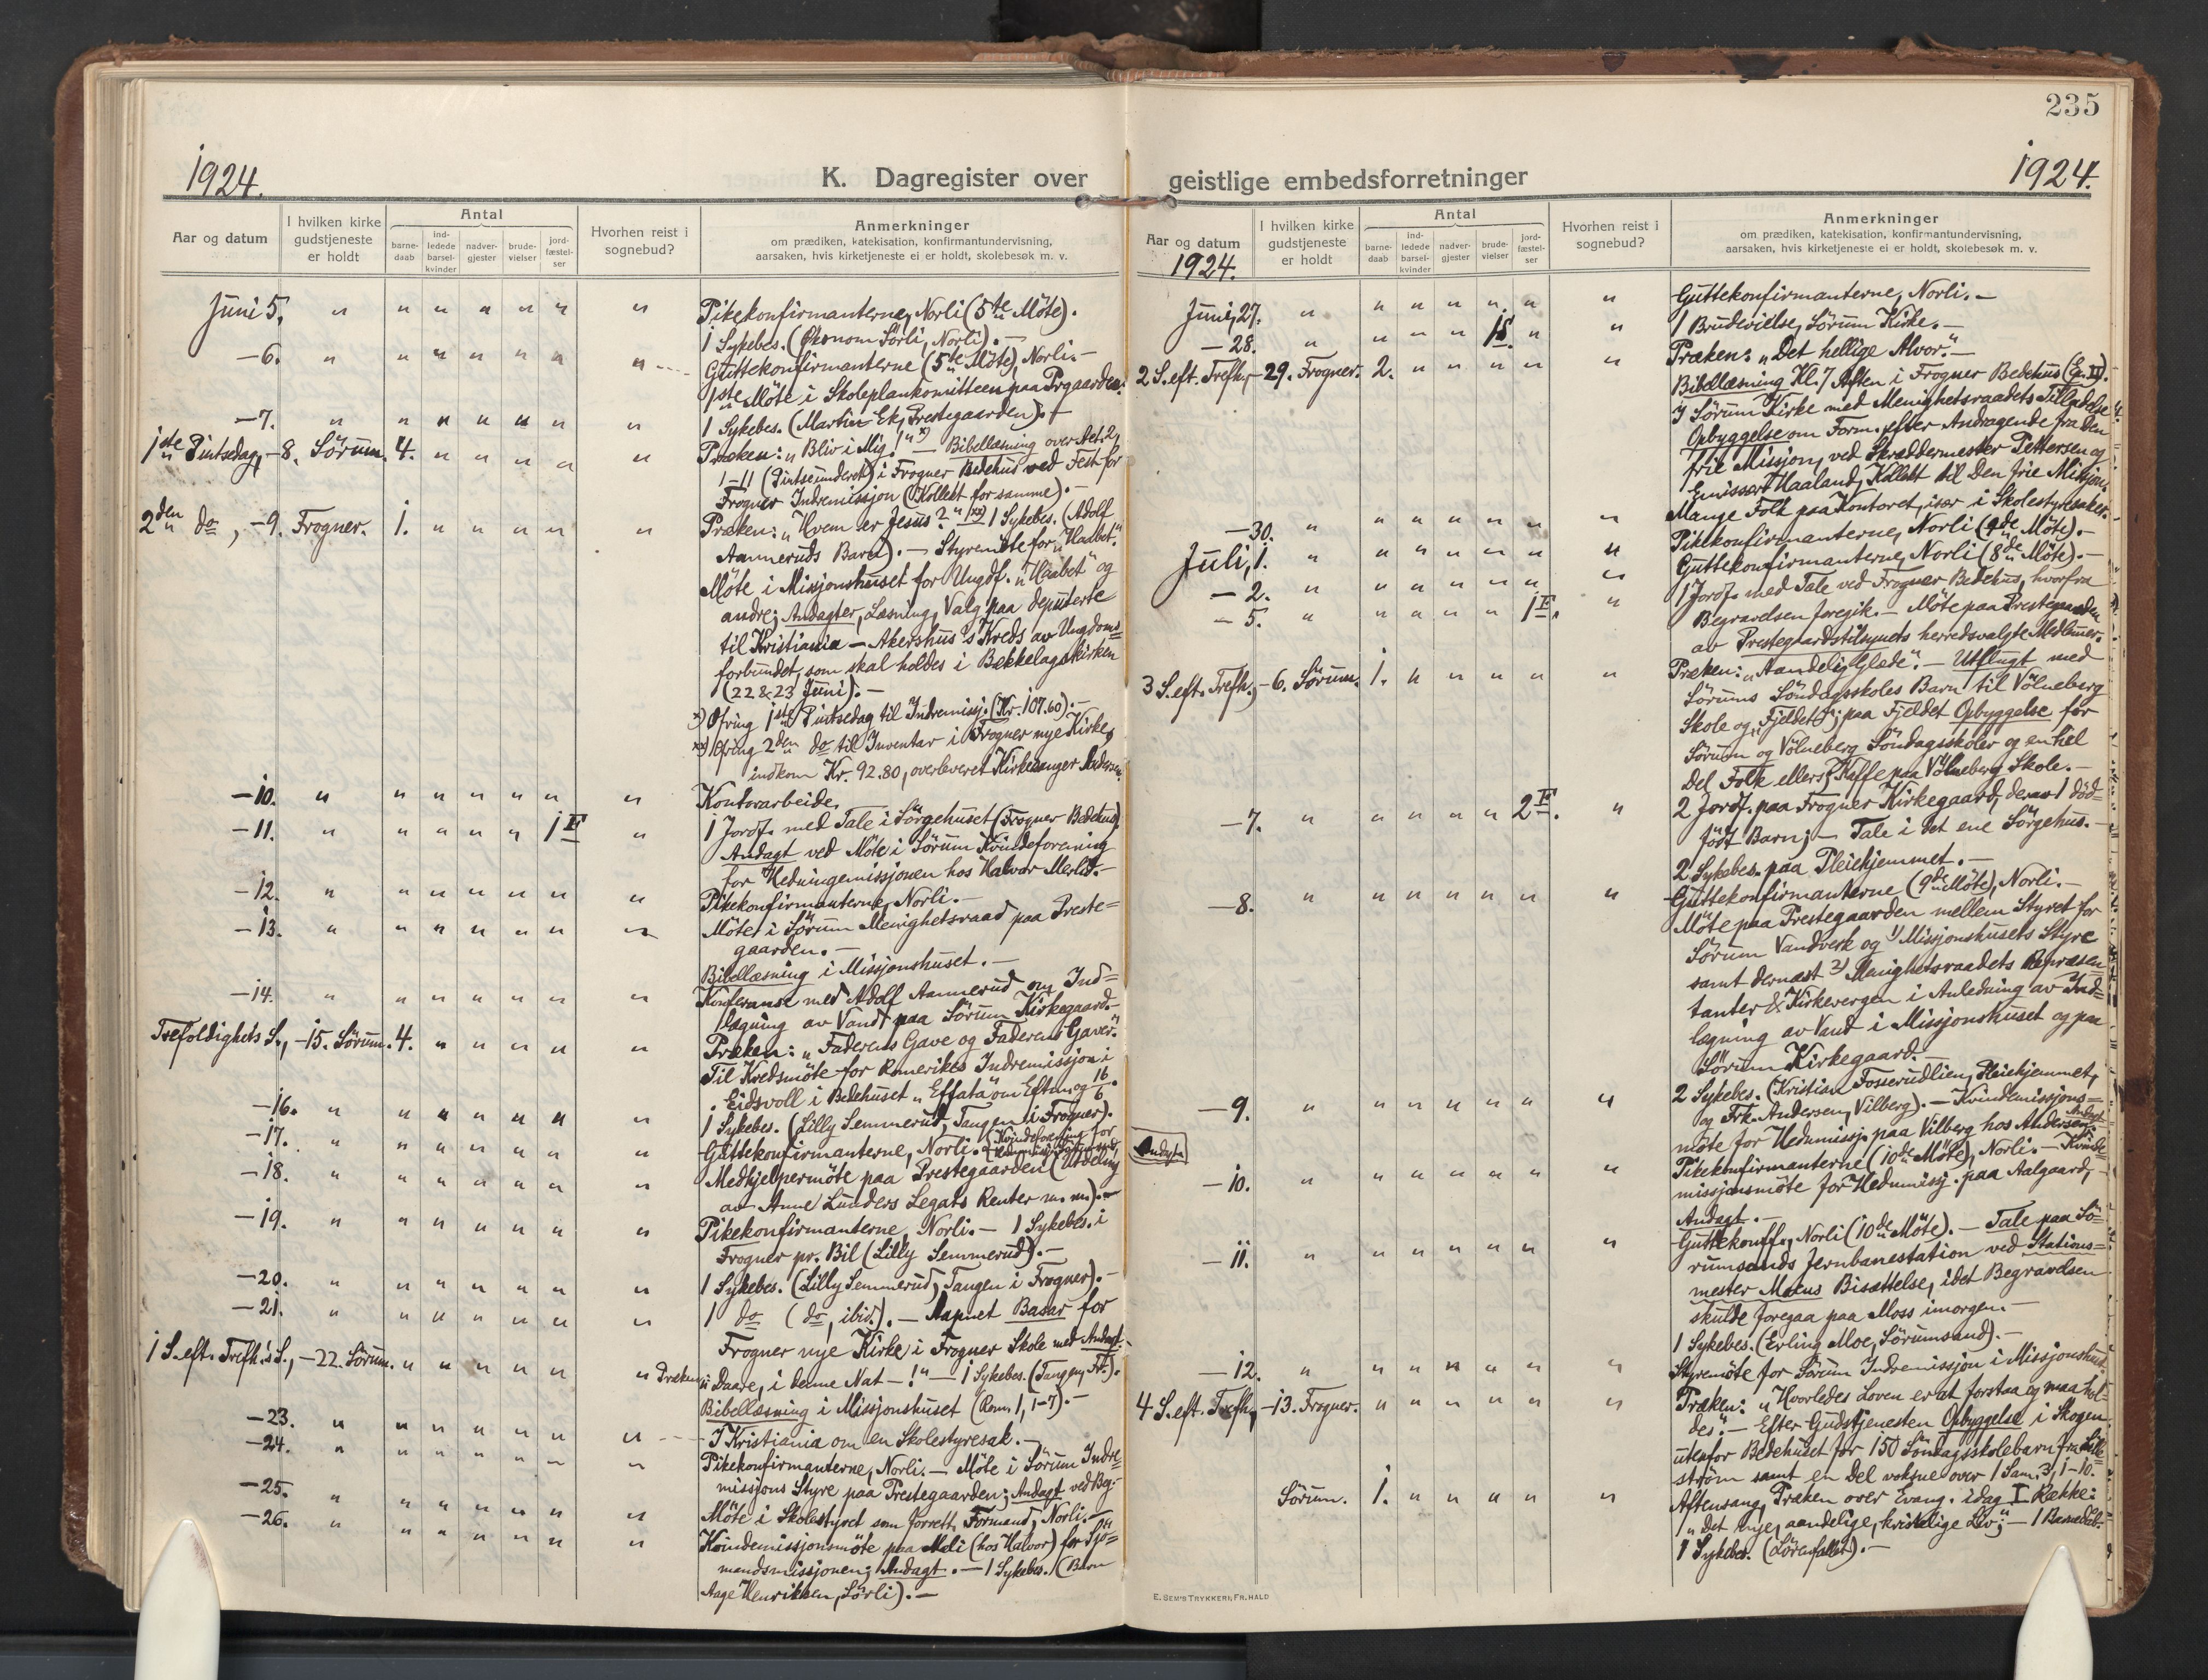 235
1924.
K. Dagregister over
Aar og datum
I hvilken kirke gudstjeneste er holdt
Antal
barne-daab
ind-ledede barsel-kvinder
nadver-gjester
brude-vielser
jord-fæstel-ser
Hvorhen reist i sognebud?
Anmerkninger
om prædiken, katekisation, konfirmantundervisning,
aarsaken, hvis kirketjeneste ei er holdt, skolebesøk m. v.
Juni 5. " " " " " " " Pikekonfirmanterne, Norli (5te Möte).
1 Sykebes. (Økonom Sörli, Norli). —
—6. " " " " " " " Guttekonfirmanterne (5te Möte), Norli. —
1ste Möte i Skoleplankomitteen paa Prgaarden.
—7. " " " " " " " 1 Sykebes. (Martin Ek, Prestegaarden). —
1ste Pintsedag, —8. Sörum. 4. " " " " " Præken: „Bliv i Mig!" x) — Bibellæsning over Act. 2,
1—11 (Pintseunderet) i Frogner Bedehus ved Fest for
Frogner Indremissjon (Kollekt for samme). —
2den do, —9. Frogner. 1. " " " " " Præken: „Hvem er Jesus?" xx) 1 Sykebes. (Adolf
Aanneruds Barn). — Styremöte for „Haabet".
Möte i Missjonshuset for Ungdf. „Haabet" og
andre; Andagter, Læsning, Valg paa deputerte
til Kristiania — Akershus's Kreds av Ungdoms=
forbundet, som skal holdes i Bekkelagskirken
(22 & 23 Juni). —
x) Ofring 1ste Pintsedag til Indremissj. (Kr. 107.60). —
xx) Ofring 2den do til Inventar i Frogner nye Kirke,
indkom Kr. 92.80, overleveret Kirkesanger Andersen.
—10. " " " " " " " Kontorarbeide.
—11. " " " " " 1 F " 1 Jordf. med Tale i Sörgehuset (Frogner Bedehus).
Andagt ved Möte i Sörum Kvindeforening
for Hedningemissjonen hos Halvor Merli. —
—12. " " " " " " " Pikekonfirmanterne, Norli. —
—13. " " " " " " " Möter i Sörum Menighetsraad paa Preste=
gaarden. —
Bibellæsning i Missjonshuset. —
—14. " " " " " " " Konferanse med Adolf Aannerud om Ind=
lægning av Vand paa Sörum Kirkegaard. —
Trefoldighets S., —15. Sörum. 4. " " " " " Præken: „Faderens Gave og Faderens Gaver."
Til Kredsmöte for Romerikes Indremissjon i
Eidsvoll i Bedehuset „Effata" om Eftm. og 16/6.
—16. " " " " " " " 1 Sykebes. (Lilly Semmerud, Tangen i Frogner).
—17. " " " " " " " Guttekonfirmanterne, Norli. (Kvindeforening for
—18. " " " " " " " Medhjelpermöte paa Prestegaarden (Utdeling
av Anne Lunders Legats Renter m. m.). —
—19. " " " " " " " Pikekonfirmanterne, Norli. — 1 Sykebes. i
Frogner pr. Bil (Lilly Semmerud). —
—20. " " " " " " " 1 Sykebes. (Lilly Semmerud, Tangen i Frogner). —
—21. " " " " " " " 1 do (do, ibid.). — Aapnet Basar for
Frogner nye Kirke i Frogner Skole med Andagt. —
1 S. eft. Trefh.'s S., —22. Sörum. " " " " " " Præken: „Daare, i denne Nat —!" — 1 Sykebes. (Tangen, Fr.).
Bibellæsning i Missjonshuset (Rom. 1, 1—7). —
—23. " " " " " " " I Kristiania om en Skolestyresak. —
—24. " " " " " " " Pikekonfirmanterne, Norli. — Möte i Sörum Indre=
missjons Styre paa Prestegaarden; Andagt ved Beg. —
—25. " " " " " " " Möte i Skolestyret som forrett. Formand, Norli. —
—26. " " " " " " " Kvindemissjonsmöte paa Meli (hos Halvor) for Sjö=
mandsmissjonen; Andagt. — 1 Sykebes. (Barn
Aage Henriksen, Sörli). —
geistlige embedsforretninger
1924.
Aar og datum
1924.
I hvilken kirke gudstjeneste er holdt
Antal
barne-daab
ind-ledede barsel-kvinder
nadver-gjester
brude-vielser
jord-fæstel-ser
Hvorhen reist i sognebud?
Anmerkninger
om prædiken, katekisation, konfirmantundervisning,
aarsaken, hvis kirketjeneste ei er holdt, skolebesøk m. v.
Juni, 27. " " " " " " " Guttekonfirmanterne, Norli. —
—28. " " " " 1 S. " " 1 Brudevielse, Sörum Kirke. —
2 S. eft. Trefh., —29. Frogner. 2. " " " " " Præken: „Det hellige Alvor." —
Bibellæsning Kl. 7 Aften i Frogner Bedehus
I Sörum Kirke med Menighetsraadets Tilladelse
Opbyggelse om Form. efter Andragende fra Den
frie Missjon, ved Skræddermester Pettersen og
Emissær Haaland, Kollekt til Den frie Missjon.
—30. " " " " " " " Mange Folk paa Kontoret, især i Skolestyresaker.
Juli, 1. " " " " " " " Pikekonfirmanterne, Norli (9de Möte). —
—2. " " " " " " " Guttekonfirmanterne, Norli (8de Möte). —
—5. " " " " " 1 F. " 1 Jordf. med Tale ved Frogner Bedehus, hvorfra
Begravelsen foregik. — Möte paa Prestegaarden
av Prestegaardstilsynets herredsvalgte Medlemer.
3 S. eft. Trefh., —6. Sörum. 1. " " " " " Præken: „Aandelig Glæde". — Utflugt med
Sörums Söndagsskoles Barn til Völneberg
Skole og „Fjeldet"; paa Fjeldet Opbyggelse for
Sörum og Völneberg Söndagsskoler og en hel
Del Folk ellers; Kaffe paa Völneberg Skole. —
—7. " " " " " 2 F. " 2 Jordf. paa Frogner Kirkegaard, derav 1 död=
födt Barn; — Tale i det ene Sörgehus. —
2 Sykebes. paa Pleiehjemmet. —
—8. " " " " " " " Guttekonfirmanterne (9de Möte), Norli. —
Möte paa Prestegaarden mellem Styret for
Sörum Vandverk og 1) Missjonshusets Styre
samt dernæst 2) Menighetsraadets Repræsen=
tanter & Kirkevergen i Anledning av Ind=
lægning av Vand i Missjonshuset og paa
Sörum Kirkegaard. —
—9. " " " " " " " 2 Sykebes. (Kristian Fosserudlien, Pleiehjemmet,
og Frk. Andersen, Vilberg). — Kvindemissjons=
möte for Hednmissj. paa Vilberg hos Andersen. Andagt
—10. " " " " " " " Pikekonfirmanterne (10de Möte), Norli. — Kvinde=
missjonsmöte for Hednmissj. paa Aalgaard; —
Andagt. —
—11. " " " " " " " Guttekonff., Norli (10de Möte). — Tale paa Sö=
rumsands Jernbanestation ved Stations=
mester Bisættelse, idet Begravelsen
skulde foregaa paa Moss imorgen. —
1 Sykebes. (Erling Moe, Sörumsand). —
—12. " " " " " " " Styremöte for Sörum Indremissjon i Missjonshuset.
4 S. eft. Trefh., —13. Frogner. " " " " " " Præken: „Hvorledes Loven er at forstaa og maa hol=
des." — Efter Gudstjenesten Opbyggelse i Skogen
utenfor Bedehuset for 150 Söndagsskolebarn fra Lille=
ström samt en Del voksne over 1 Sam. 3, 1—10.
Sörum. 1. " " " " " Aftensang, Præken over Evang. idag I Række:
„Det nye, aandelige, kristelige Liv"; — 1 Barnedåb.
1 Sykebes. (Lörenfallet). —
E. SEM'S TRYKKERI, FR.HALD